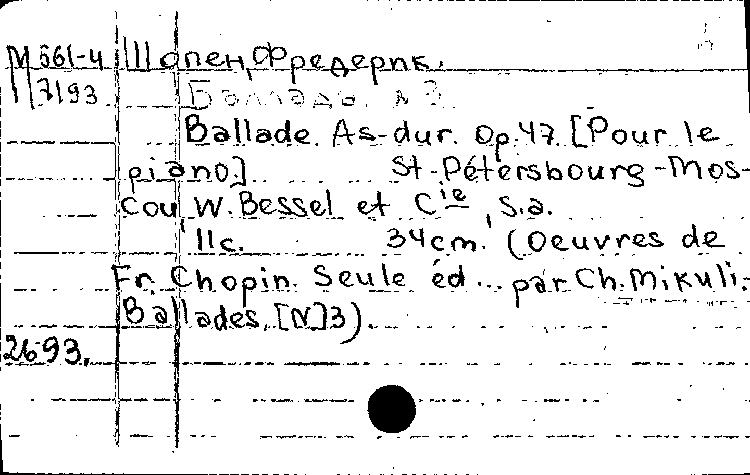 М 561-4 Шопен, Фредерик.
1 7193 Баллада. №3
Ballade. As-dur. Op.47. [Pour le
piano.] St-Pétersbourg-Mos-
cou, W. Bessel et Cie, s.a.
11c. 34cm. (Oeuvres de
Fr. Chopin. Seule éd... par Ch. Mikuli.
Ballades, [N]3).
2693.